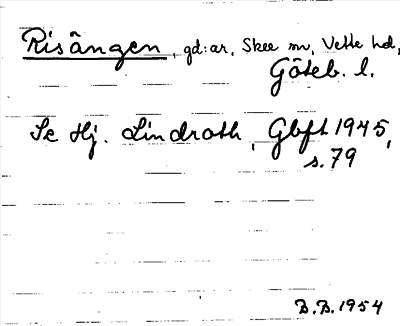 Risängen, gd:ar, Skee sn, Vette hd,
Göteb. l.
Se Hj. Lindroth, Gbft 1945,
s. 79
B.B. 1954